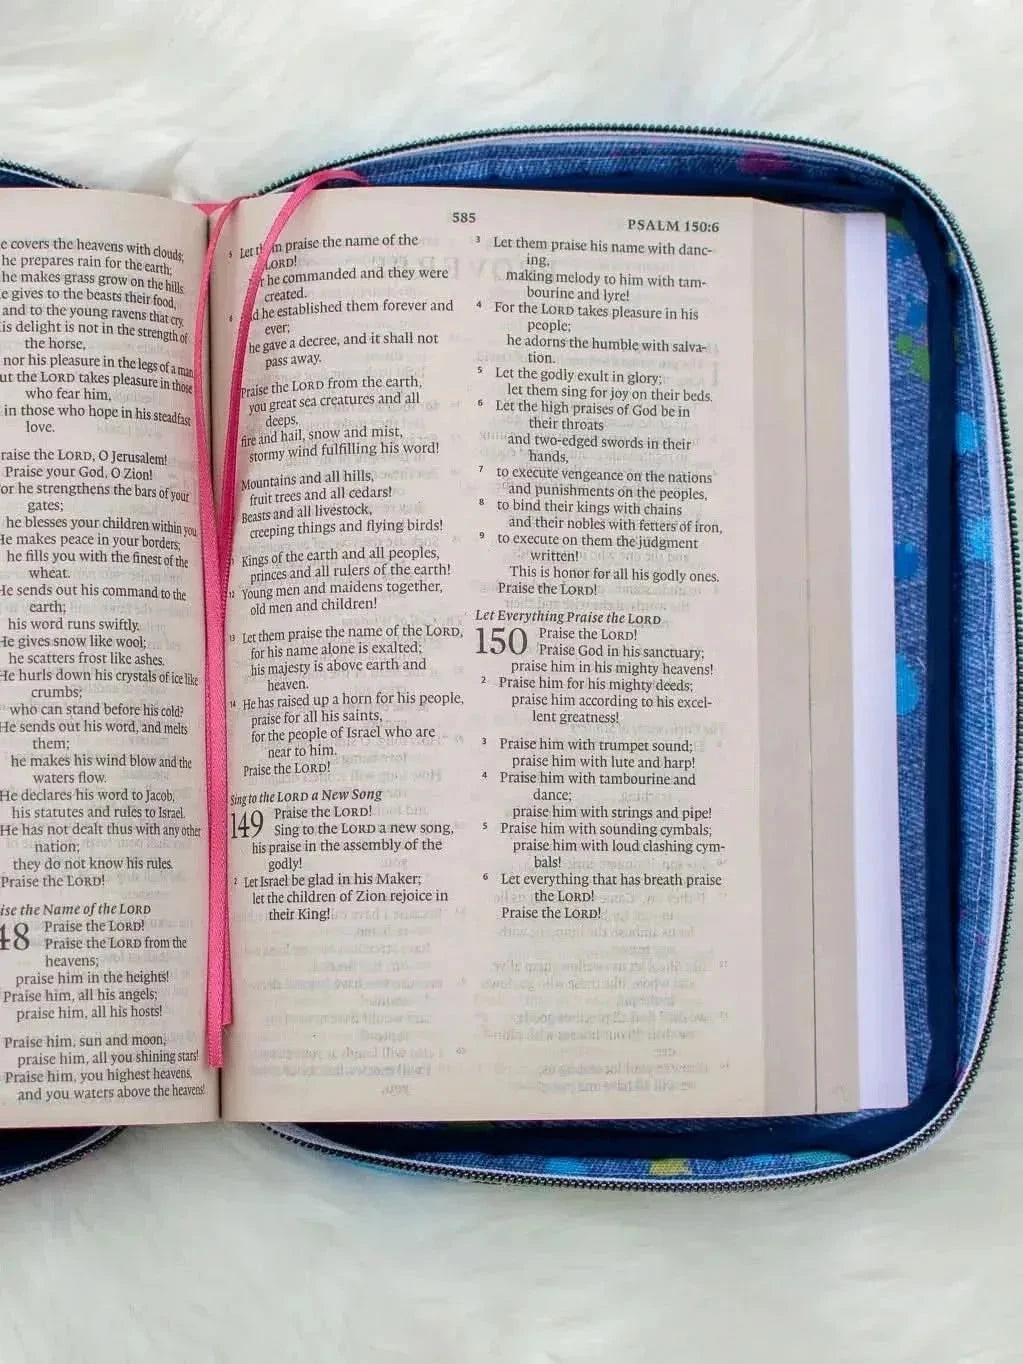 e covers the heavens with clouds;
he prepares rain for the earth;
he makes grass grow on the hills.
e gives to the beasts their food,
and to the young ravens that cry.
is delight is not in the strength of
the horse,
nor his pleasure in the legs of a man,
ut the LORD takes pleasure in those
who fear him,
in those who hope in his steadfast
love.
raise the LORD, O Jerusalem!
Praise your God, O Zion!
or he strengthens the bars of your
gates;
he blesses your children within you.
He makes peace in your borders;
he fills you with the finest of the
wheat.
He sends out his command to the
earth;
his word runs swiftly.
He gives snow like wool;
he scatters frost like ashes.
He hurls down his crystals of ice like
crumbs;
who can stand before his cold?
He sends out his word, and melts
them;
he makes his wind blow and the
waters flow.
He declares his word to Jacob,
his statutes and rules to Israel.
He has not dealt thus with any other
nation;
they do not know his rules.
Praise the LORD!
ise the Name of the LORD
48 Praise the LORD!
Praise the LORD from the
heavens;
praise him in the heights!
Praise him, all his angels;
praise him, all his hosts!
Praise him, sun and moon,
praise him, all you shining stars!
Praise him, you highest heavens,
and you waters above the heavens!
585
PSALM 150:6
5 Let them praise the name of the
LORD!
he commanded and they were
created.
6 he established them forever and
ever;
he gave a decree, and it shall not
pass away.
Praise the LORD from the earth,
you great sea creatures and all
deeps,
fire and hail, snow and mist,
stormy wind fulfilling his word!
Mountains and all hills,
fruit trees and all cedars!
Beasts and all livestock,
creeping things and flying birds!
Kings of the earth and all peoples,
princes and all rulers of the earth!
12 Young men and maidens together,
old men and children!
13 Let them praise the name of the LORD,
for his name alone is exalted;
his majesty is above earth and
heaven.
14 He has raised up a horn for his people,
praise for all his saints,
for the people of Israel who are
near to him.
Praise the LORD!
Sing to the LORD a New Song
149 Praise the LORD!
Sing to the LORD a new song,
his praise in the assembly of the
godly!
2 Let Israel be glad in his Maker;
let the children of Zion rejoice in
their King!
3 Let them praise his name with danc-
ing,
making melody to him with tam-
bourine and lyre!
4 For the LORD takes pleasure in his
people;
he adorns the humble with salva-
tion.
5 Let the godly exult in glory;
let them sing for joy on their beds.
6 Let the high praises of God be in
their throats
and two-edged swords in their
hands,
7 to execute vengeance on the nations
and punishments on the peoples,
8 to bind their kings with chains
and their nobles with fetters of iron,
9 to execute on them the judgment
written!
This is honor for all his godly ones.
Praise the LORD!
Let Everything Praise the LORD
150 Praise the LORD!
Praise God in his sanctuary;
praise him in his mighty heavens!
2 Praise him for his mighty deeds;
praise him according to his excel-
lent greatness!
3 Praise him with trumpet sound;
praise him with lute and harp!
4 Praise him with tambourine and
dance;
praise him with strings and pipe!
5 Praise him with sounding cymbals;
praise him with loud clashing cym-
bals!
6 Let everything that has breath praise
the LORD!
Praise the LORD!